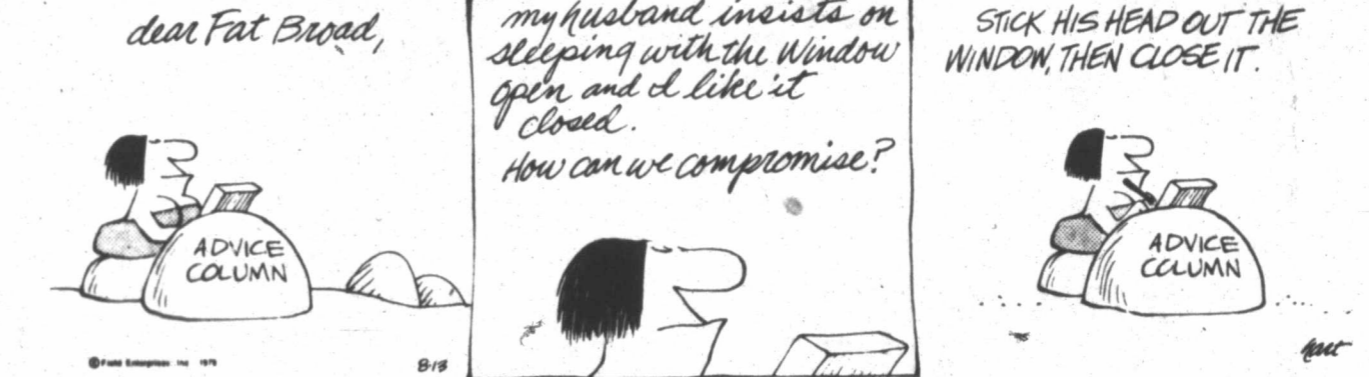 dear Fat Broad,
ADVICE
COLUMN
© Field Enterprises Inc 1975
8-13
my husband insists on
sleeping with the window
open and I like it
closed.
How can we compromise?
STICK HIS HEAD OUT THE
WINDOW, THEN CLOSE IT.
ADVICE
COLUMN
hart